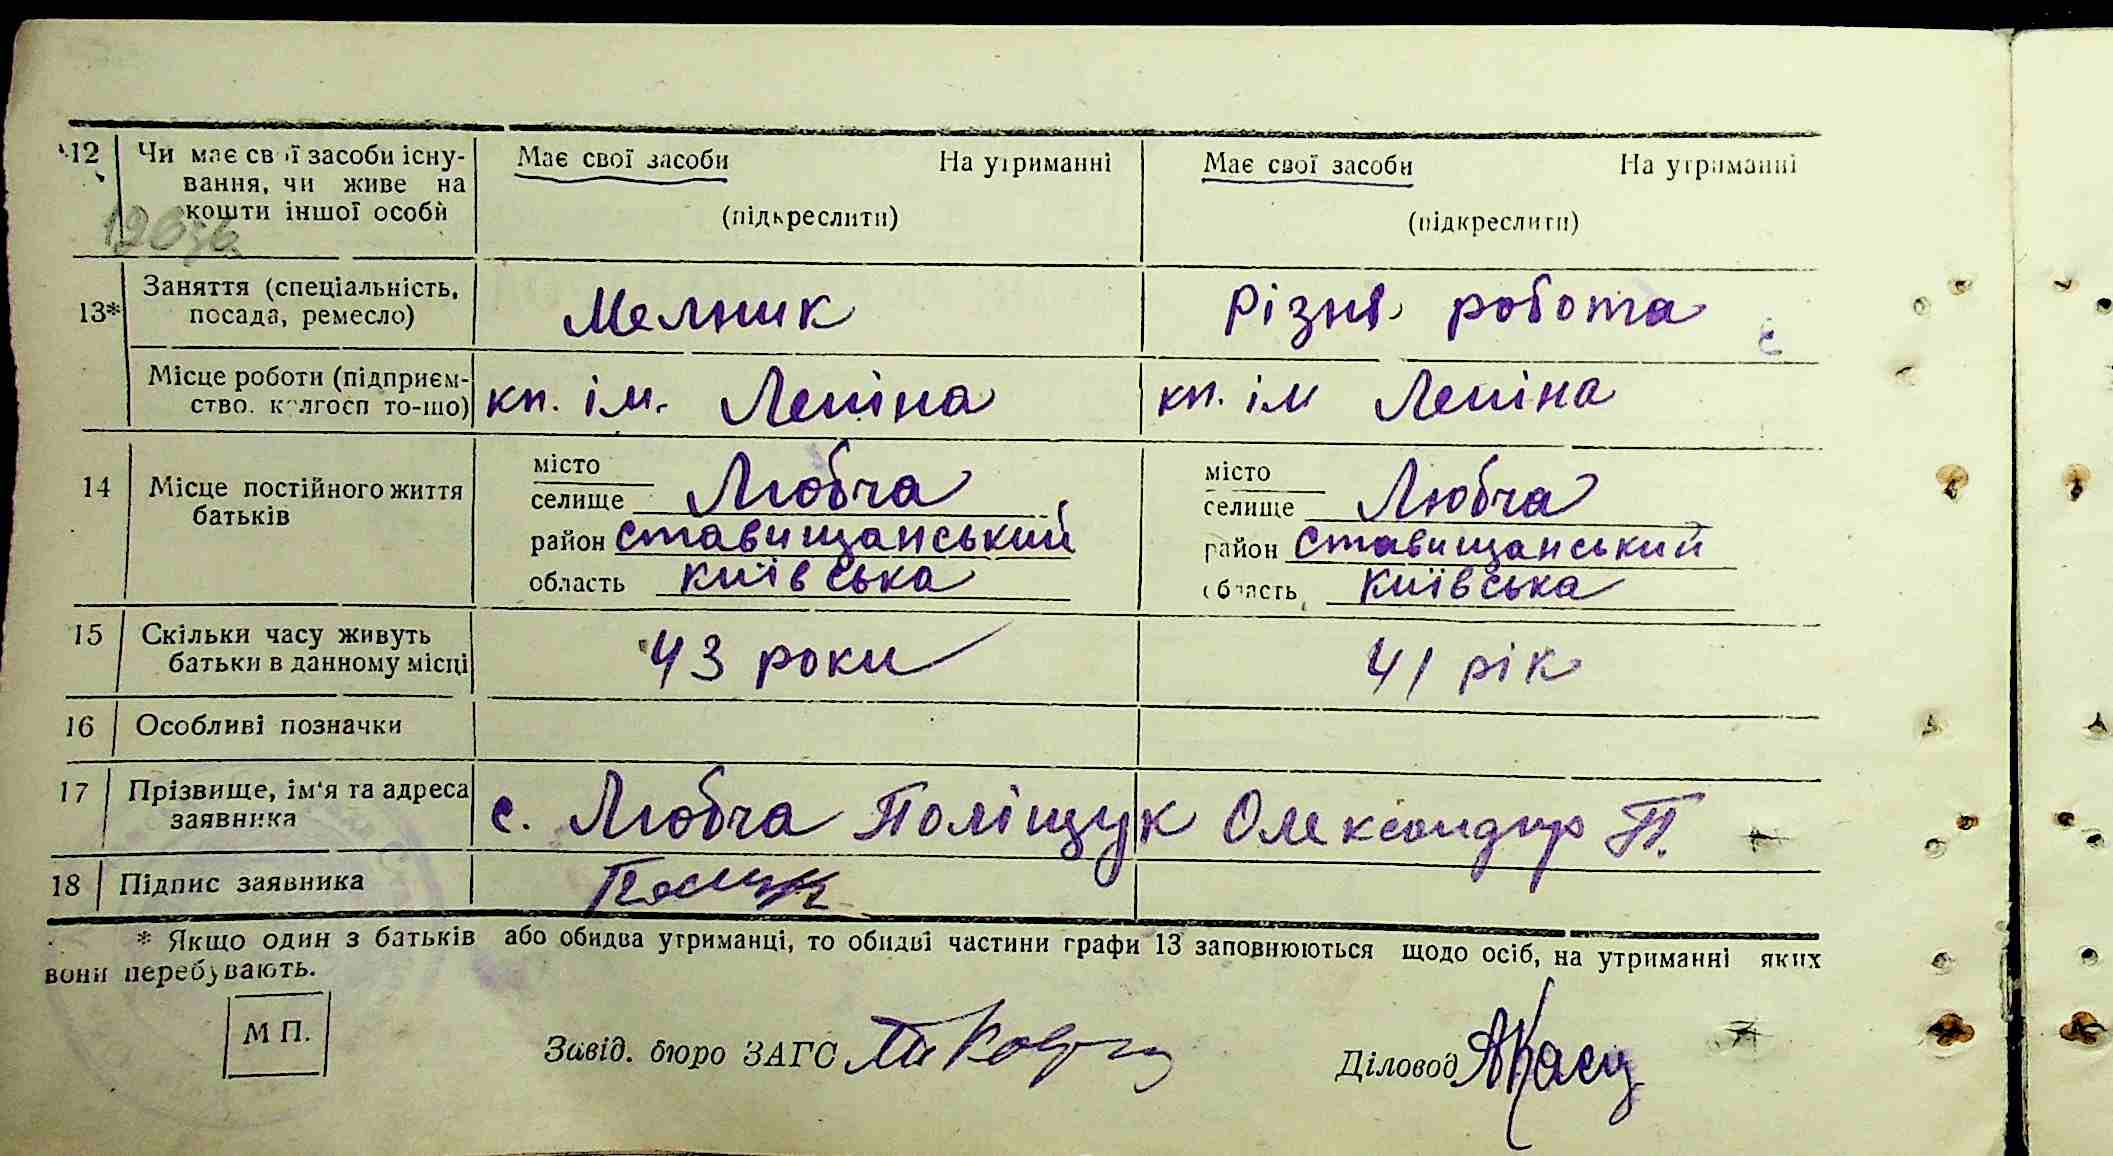 12 Чи має свої засоби існу- Має свої засоби На утриманні Має свої засоби На утриманні
вання, чи живе на
кошти іншої особи (підкреслити) (підкреслити)
13* Заняття (спеціальність, Мелник Різна робота
посада, ремесло)
Місце роботи (підприєм- кп. ім. Леніна кп. ім Леніна
ство, колгосп то-що)
14 Місце постійного життя місто місто
батьків селище Любча селище Любча
район Ставищанський район Ставищанський
область Київська область Київська
15 Скільки часу живуть 43 роки 41 рік
батьки в данному місці
16 Особливі позначки
17 Прізвище, ім'я та адреса с. Любча Поліщук Олександр П.
заявника
18 Підпис заявника
* Якщо один з батьків або обидва утриманці, то обидві частини графи 13 заповнюються щодо осіб, на утриманні яких
вони перебувають.
М П.
Завід. бюро ЗАГС Діловод